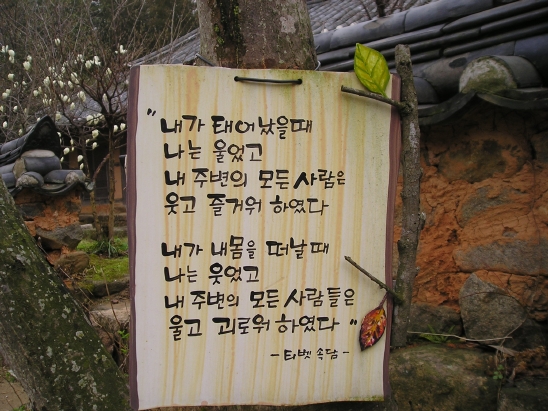 "내가 태어났을때
나는 울었고
내 주변의 모든 사람은
웃고 즐거워 하였다
내가 내몸을 떠날때
나는 웃었고
내 주변의 모든 사람들은
울고 괴로워 하였다"
-티벳 속담-